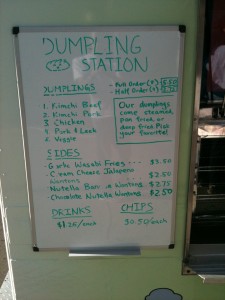 DUMPLING
STATION
DUMPLINGS - Full Order
- Half Order
1. Kimchi Beef
2. Kimchi Pork
3. Chicken
4. Pork & Leek
5. Veggie
Our dumplings
come steamed,
pan fried or
deep fried Pick
your favorite!
SIDES
Garlic Wasabi Fries $3.50
Cream Cheese Jalapeno
Wontons $2.50
Nutella Wontons $2.75
Chocolate Nutella Wontons $2.50
DRINKS
$1.25/each
CHIPS
/each